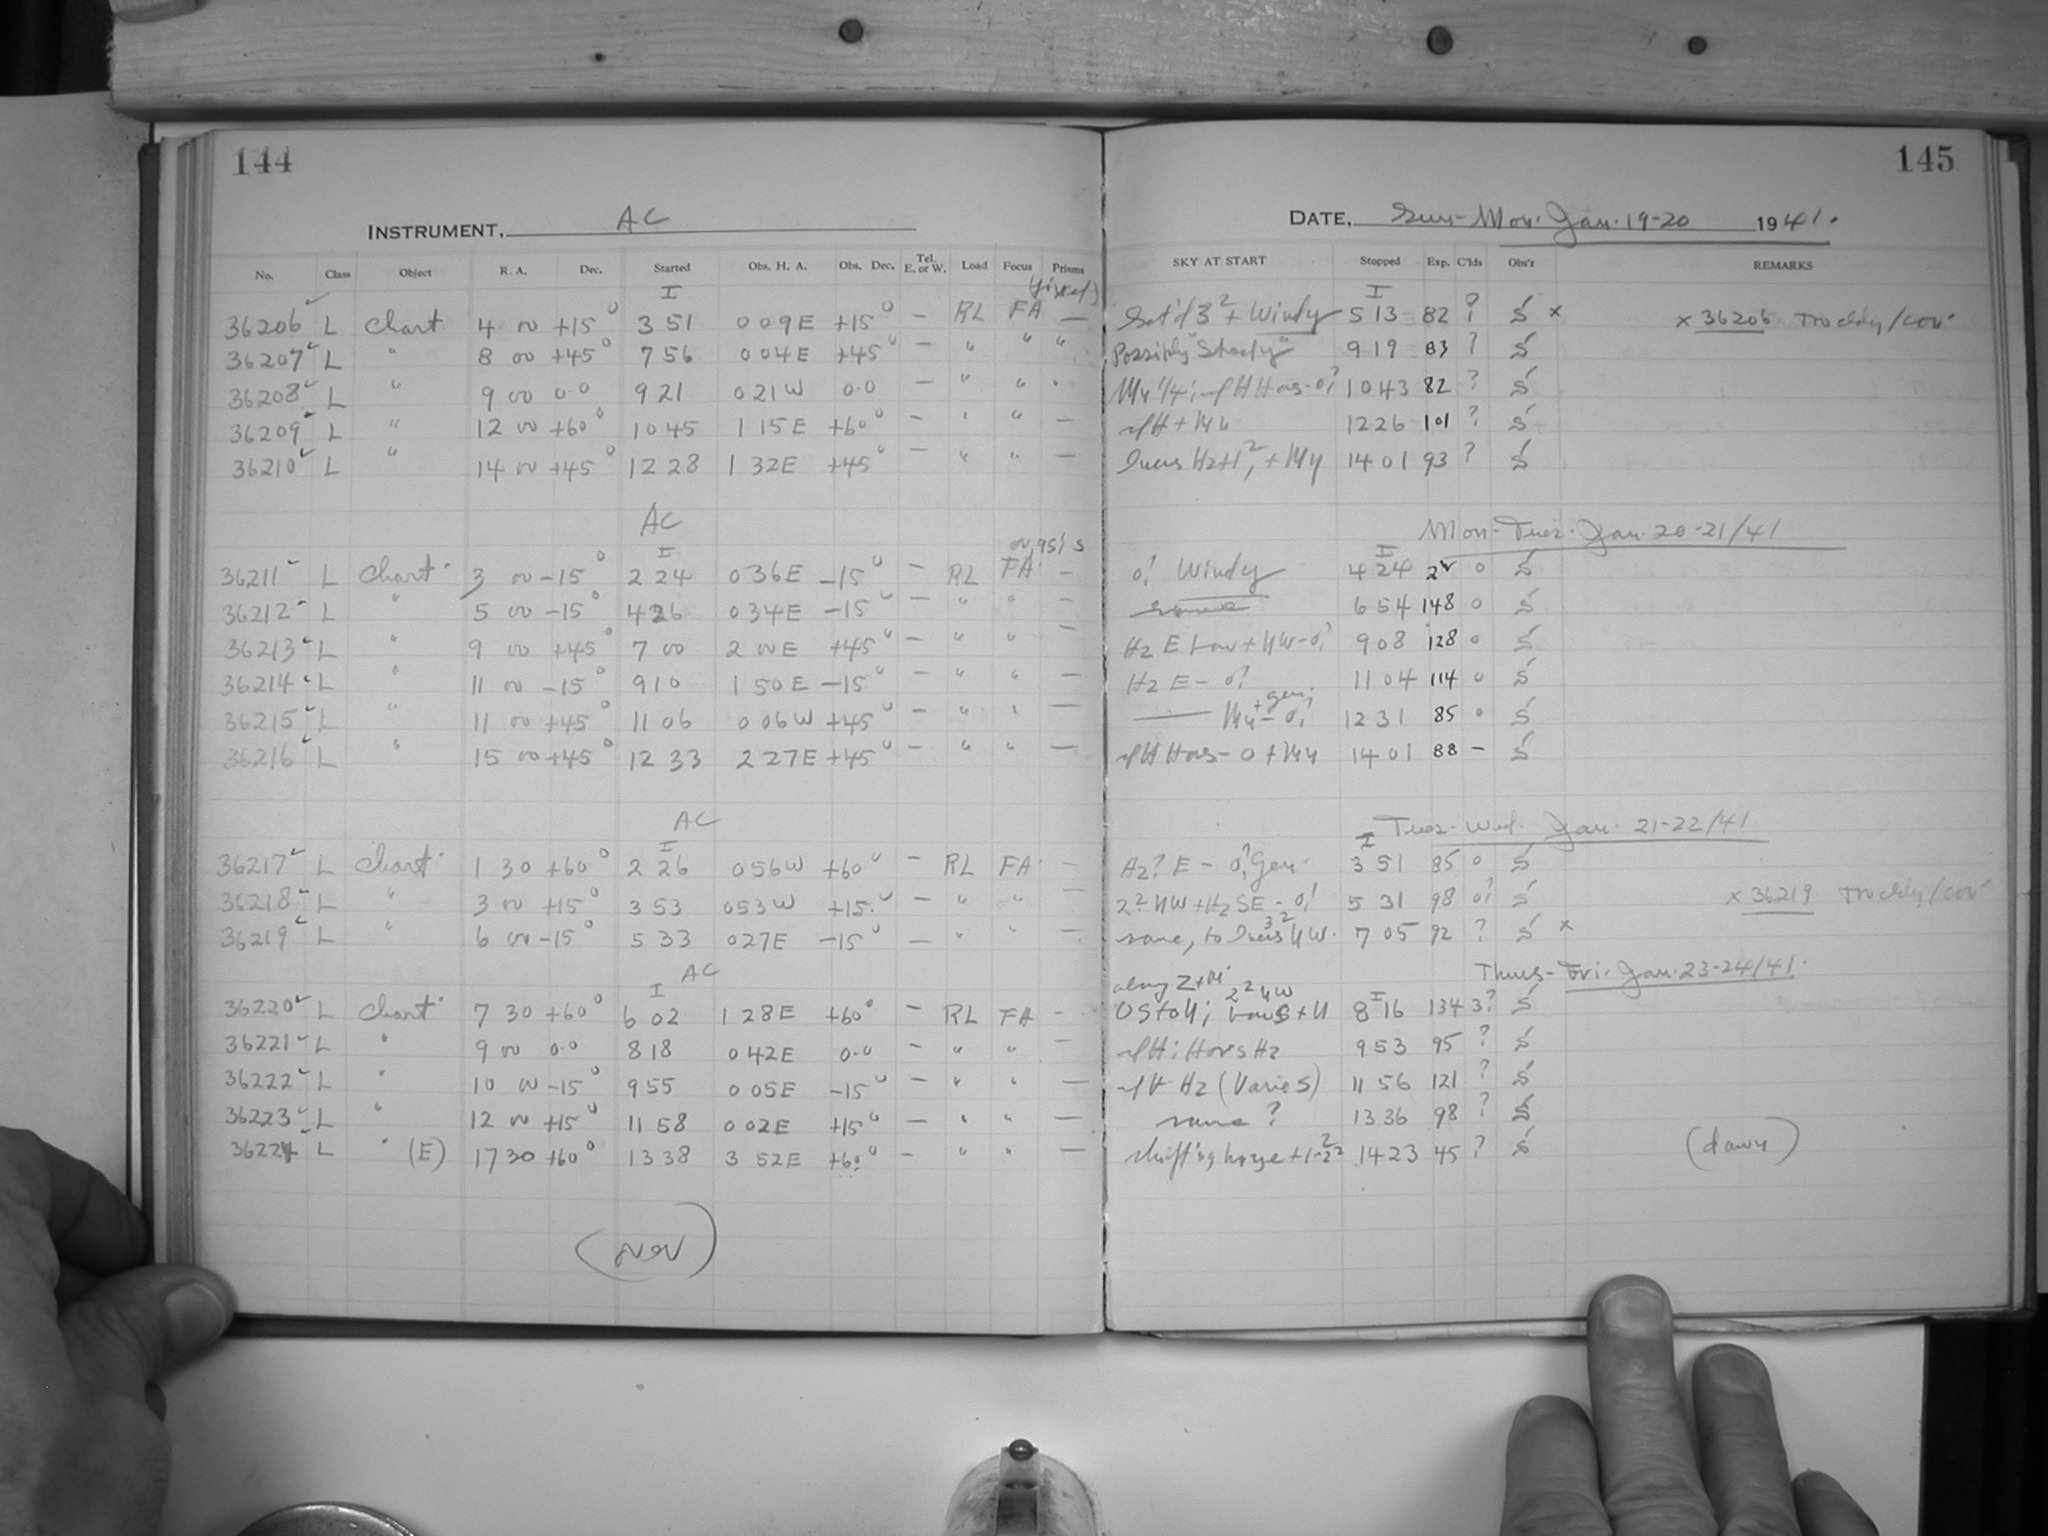 144
145
INSTRUMENT, AC
DATE, Sun-Mon. Jan. 19-20 1941.
No. Class Object R. A. Dec. Started Obs. H. A. Obs. Dec. Tel. E. or W. Load Focus Prisms SKY AT START Stopped Exp. C'lds Obs'r REMARKS
I I
36206 L Chart 4 00 +15° 3 51 0 09E +15° — RL FA — + Windy 5 13 82 ? S × × 36206
36207 L " 8 00 +45° 7 56 0 04E +45° — " " " Possibly "Steady" 9 19 83 ? S
36208 L " 9 00 0.0 9 21 0 21W 0.0 — " " " 10 43 82 ? S
36209 L " 12 00 +60° 10 45 1 15E +60° — " " — 12 26 101 ? S
36210 L " 14 00 +45° 12 28 1 32E +45° — " " — 14 01 93 ? S
AC Mon-Tues. Jan. 20-21/41
I I
36211 L Chart 3 00 -15° 2 24 0 36E -15° — RL FA — 0? Windy 4 24 0 S
36212 L " 5 00 -15° 4 26 0 34E -15° — " " — same 6 54 148 0 S
36213 L " 9 00 +45° 7 00 2 00E +45° — " " — Hz E Low + NW-0? 9 08 128 0 S
36214 L " 11 00 -15° 9 10 1 50E -15° — " " — Hz E - 0? 11 04 114 0 S
36215 L " 11 00 +45° 11 06 0 06W +45° — " " — 12 31 85 0 S
36216 L " 15 00 +45° 12 33 2 27E +45° — " " — 14 01 88 — S
AC Tues-Wed. Jan. 21-22/41
I I
36217 L Chart 1 30 +60° 2 26 0 56W +60° — RL FA — Hz? E - 0? Gen. 3 51 85 0 S
36218 L " 3 00 +15° 3 53 0 53W +15° — " " — NW + Hz SE - 0? 5 31 98 0? S × 36219
36219 L " 6 00 -15° 5 33 0 27E -15° — " " — same, to NW. 7 05 92 ? S ×
AC Thurs-Fri. Jan. 23-24/41.
I along I
36220 L Chart 7 30 +60° 6 02 1 28E +60° — RL FA — 0 S to N; Low S + N 8 16 134 3? S
36221 L " 9 00 0.0 8 18 0 42E 0.0 — " " — 9 53 95 ? S
36222 L " 10 00 -15° 9 55 0 05E -15° — " " — Hz (Varies) 11 56 121 ? S
36223 L " 12 00 +15° 11 58 0 02E +15° — " " — same ? 13 36 98 ? S
36224 L " (E) 17 30 +60° 13 38 3 52E +60° — " " — shifting 14 23 45 ? S (dawn)